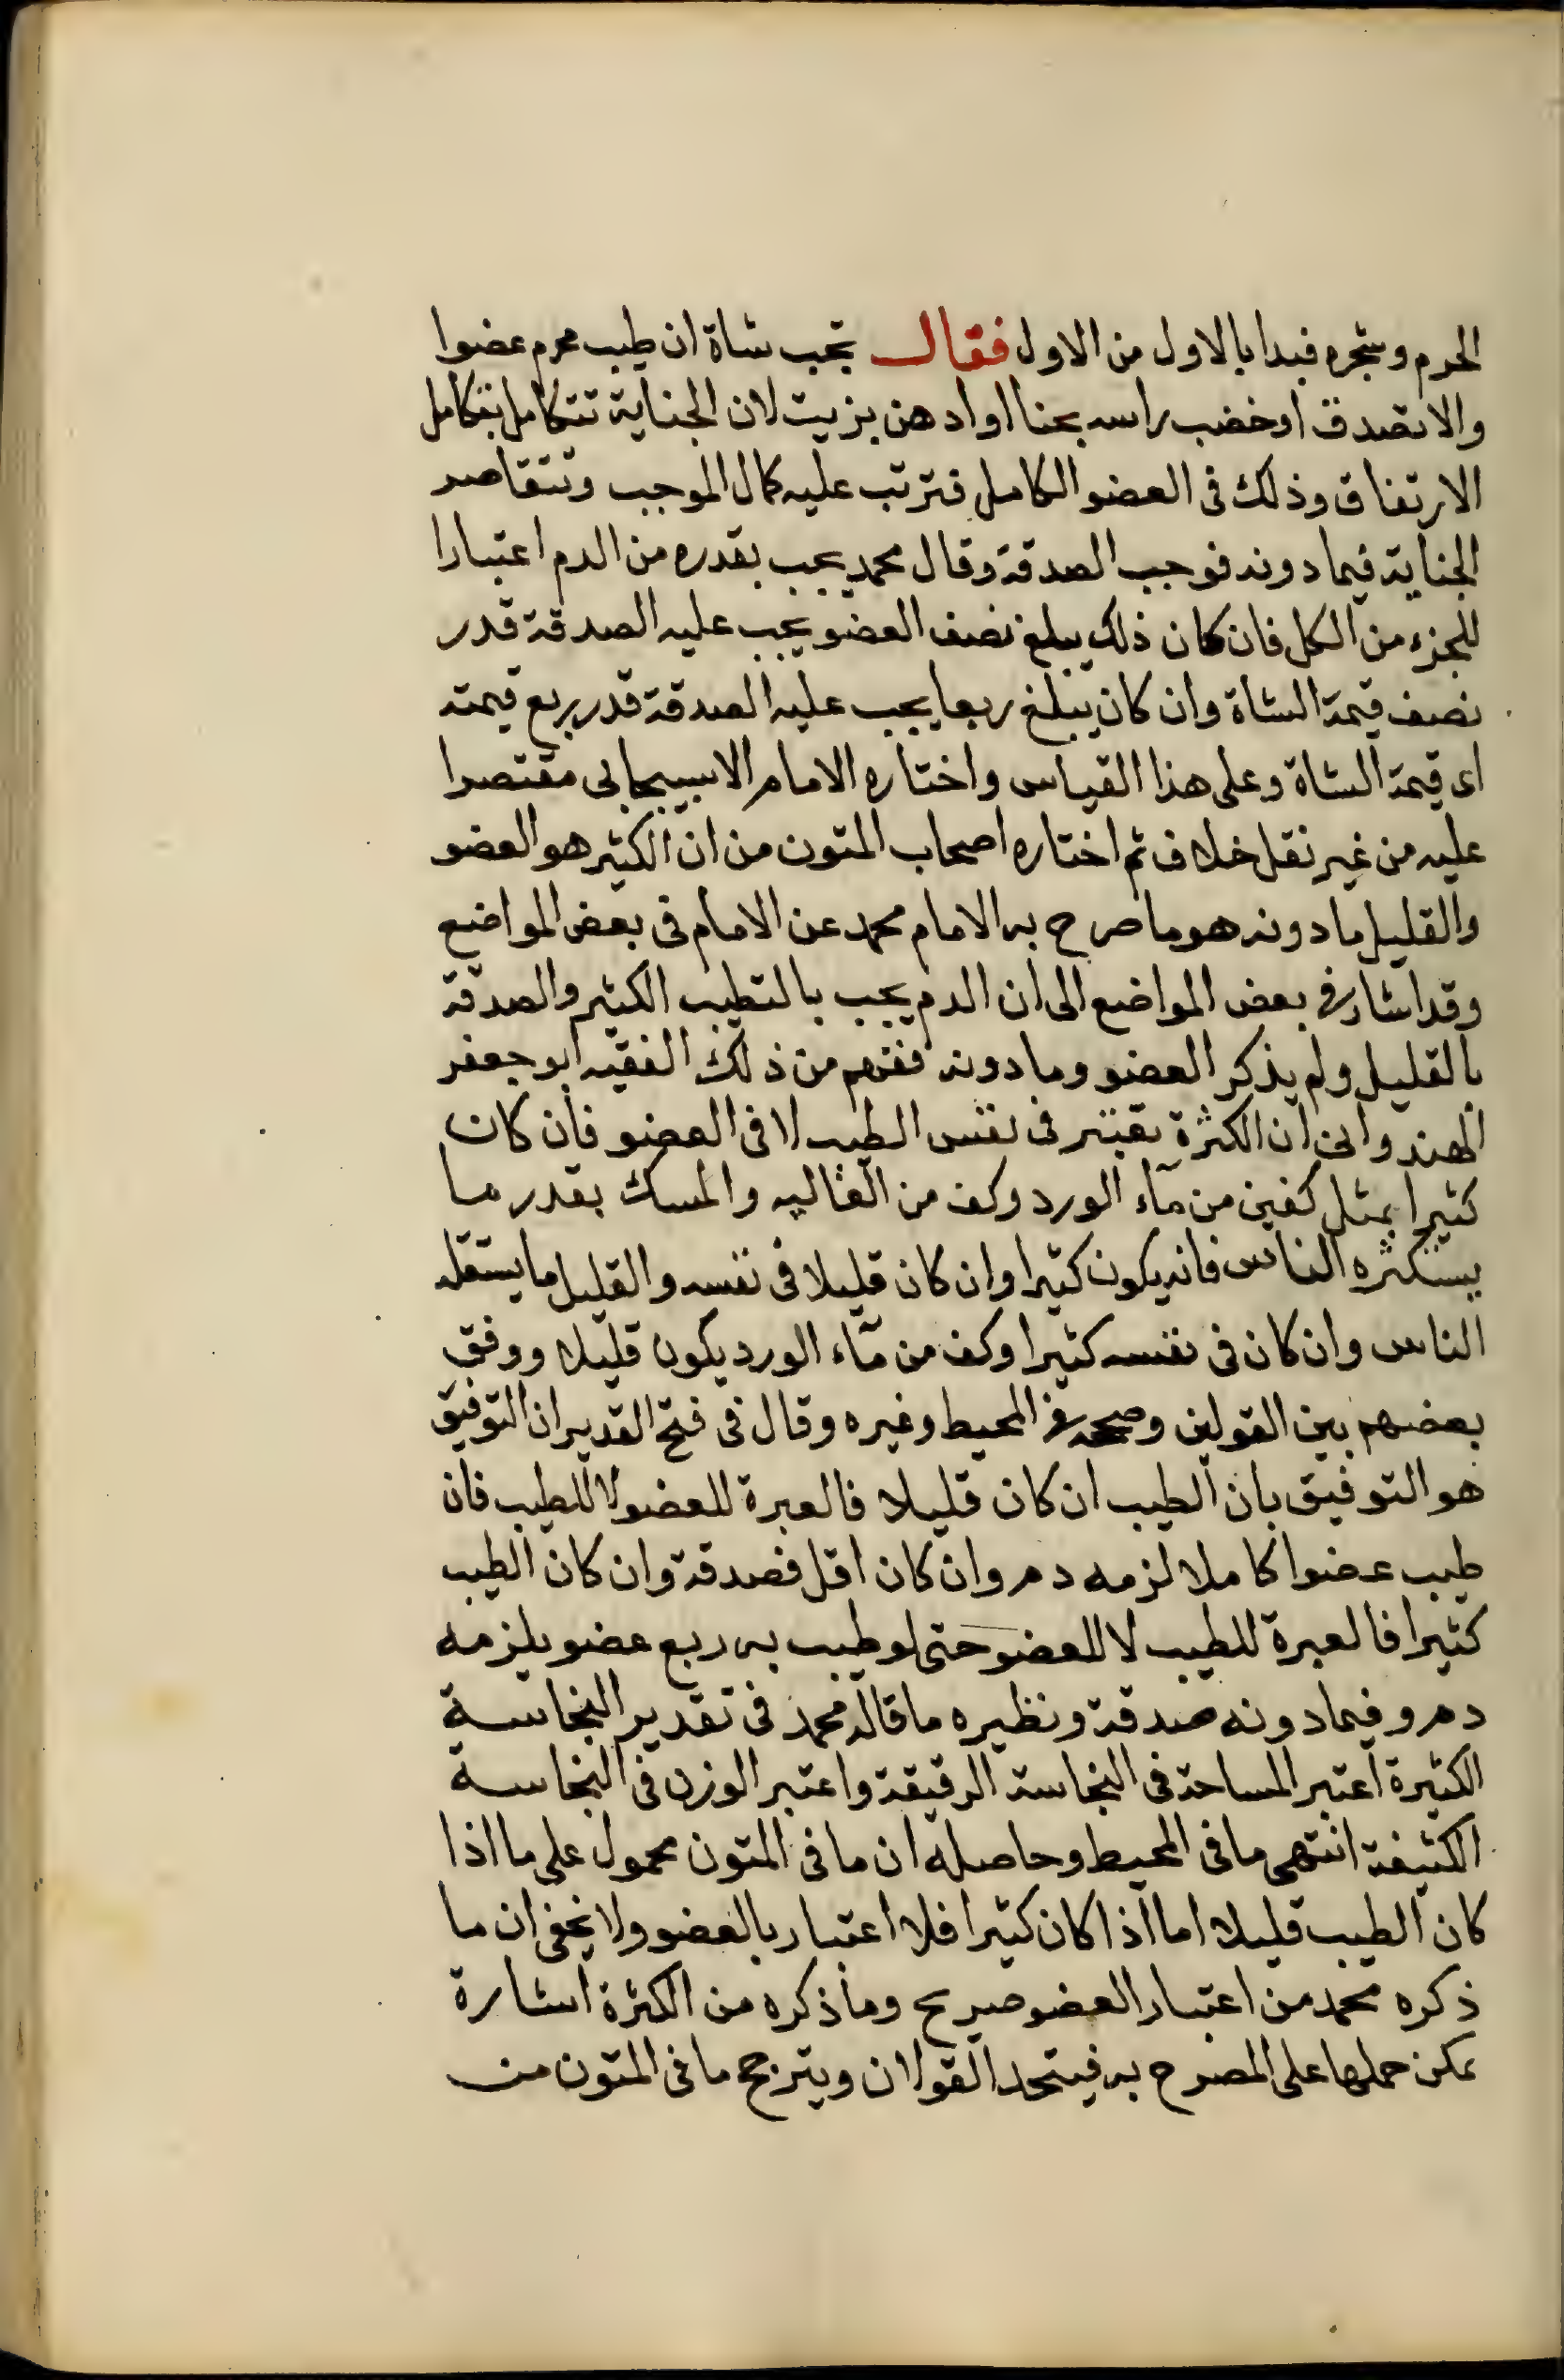 الحرم وشجره فبدا بالاول من الاول فقال تجب شاة ان طيب محرم عضوا
والا تصدق اوخضب راسه بحنا او ادهن بزيت لان الجناية تتكامل بتكامل
الارتفاق وذلك فى العضو الكامل فترتب عليه كمال الموجب وتتقاصر
الجناية فيما دونه فوجب الصدقة وقال محمد يجب بقدره من الدم اعتبارا
للجزء من الكل فان كان ذلك يبلغ نصف العضو يجب عليه الصدقة قدر
نصف قيمة الشاة وان كان يبلغ ربعا يجب عليه الصدقة قدر ربع قيمته
اى قيمة الشاة وعلى هذا القياس واختاره الامام الاسبيجابى مقتصرا
عليه من غير نقل خلاف ثم اختاره اصحاب المتون من ان الكثير هو العضو
والقليل ما دونه هو ما صرح به الامام محمد عن الامام فى بعض المواضع
وقد اشار فى بعض المواضع الى ان الدم يجب بالتطيب الكثير والصدقة
بالقليل ولم يذكر العضو وما دونه ففهم من ذلك الفقيه ابو جعفر
الهندوانى ان الكثرة تعتبر فى نفس الطيب لا فى العضو فان كان
كثيرا بمثل كفين من مآء الورد وكف من الغاليه والمسك بقدر ما
يستكثره الناس فانه يكون كثيرا وان كان قليلا فى نفسه والقليل ما يستقله
الناس وان كان فى نفسه كثيرا وكف من مآء الورد يكون قليلا ووفق
بعضهم بين القولين وصححه فى المحيط وغيره وقال فى فتح القدير ان التوفيق
هو التوفيق بان الطيب ان كان قليلا فالعبرة للعضو لا للطيب فان
طيب عضوا كاملا لزمه دم وان كان اقل فصدقة وان كان الطيب
كثيرا فالعبرة للطيب لا للعضو حتى لو طيب به ربع عضو يلزمه
دم وفيما دونه صدقة ونظيره ما قاله محمد فى تقدير النجاسة
الكثيرة اعتبر المساحة فى النجاسة الرقيقة واعتبر الوزن فى النجاسة
الكثيفة انتهى ما فى المحيط وحاصله ان ما فى المتون محمول على ما اذا
كان الطيب قليلا اما اذا كان كثيرا فلا اعتبار بالعضو ولا يخفى ان ما
ذكره محمد من اعتبار العضو صريح وما ذكره من الكثرة اشارة
يمكن حملها على المصرح به فيتحد القولان ويترجح ما فى المتون من